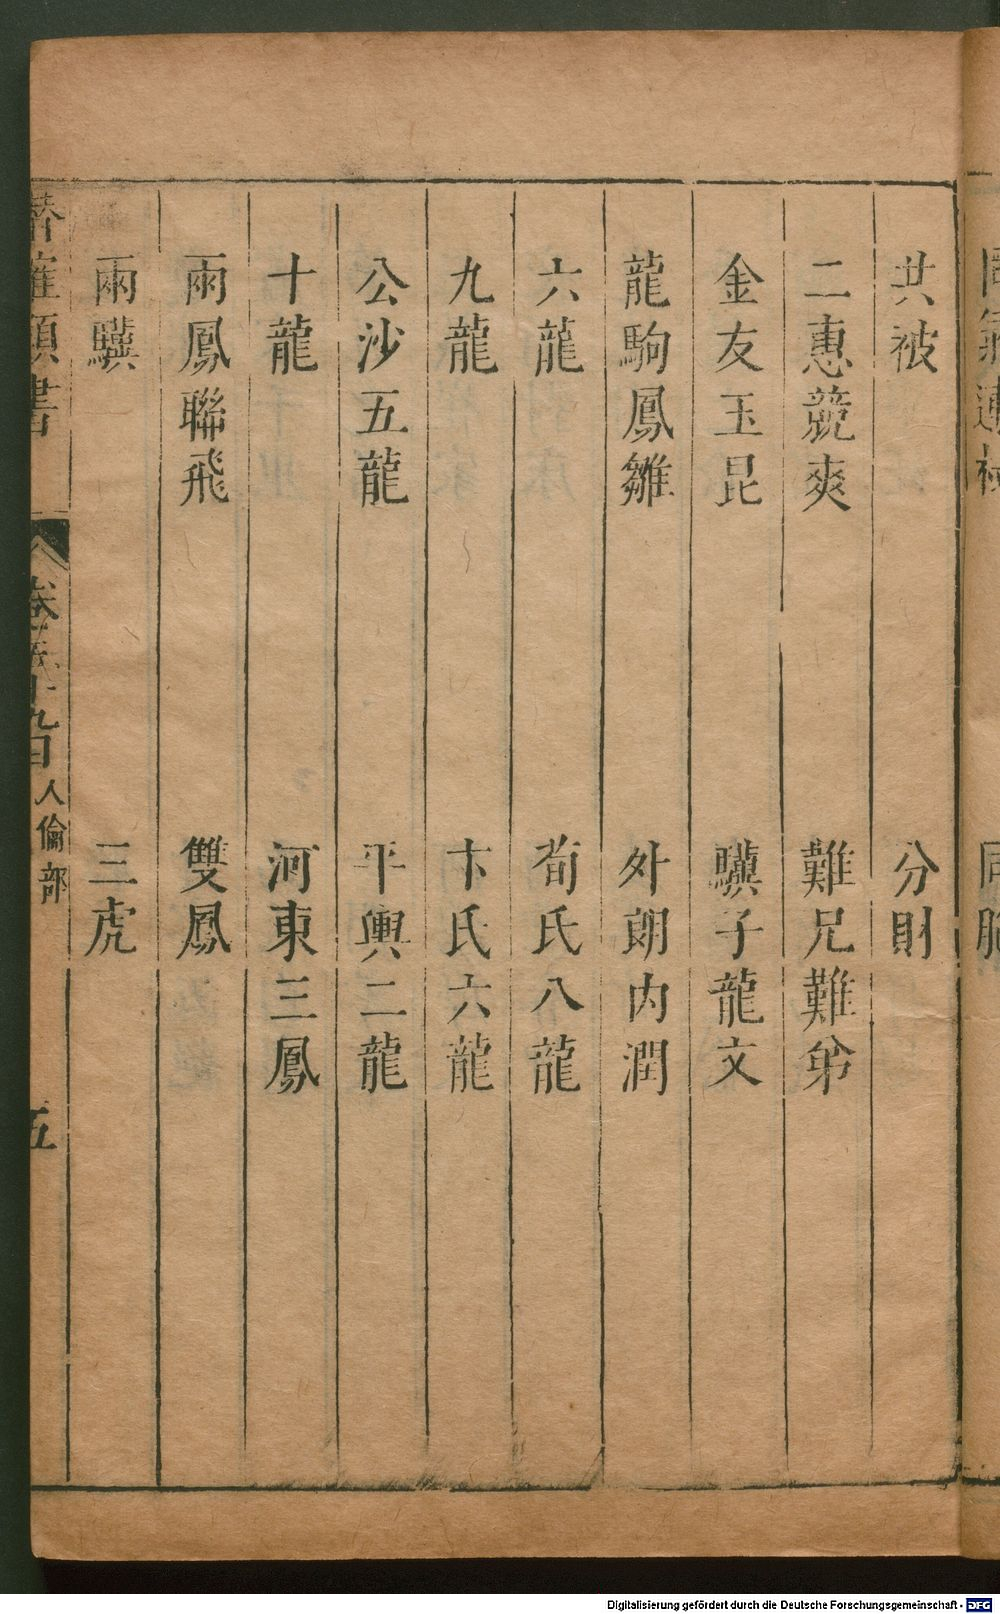 共被 分財
二惠競爽 難兄難弟
金友玉昆 驥子龍文
龍駒鳳雛 外朗內潤
六龍 荀氏八龍
九龍 卞氏六龍
公沙五龍 平輿二龍
十龍 河東三鳳
兩鳳聯飛 雙鳳
兩驥 三虎
類書
人倫部
五
Digitalisierung gefördert durch die Deutsche Forschungsgemeinschaft - DFG